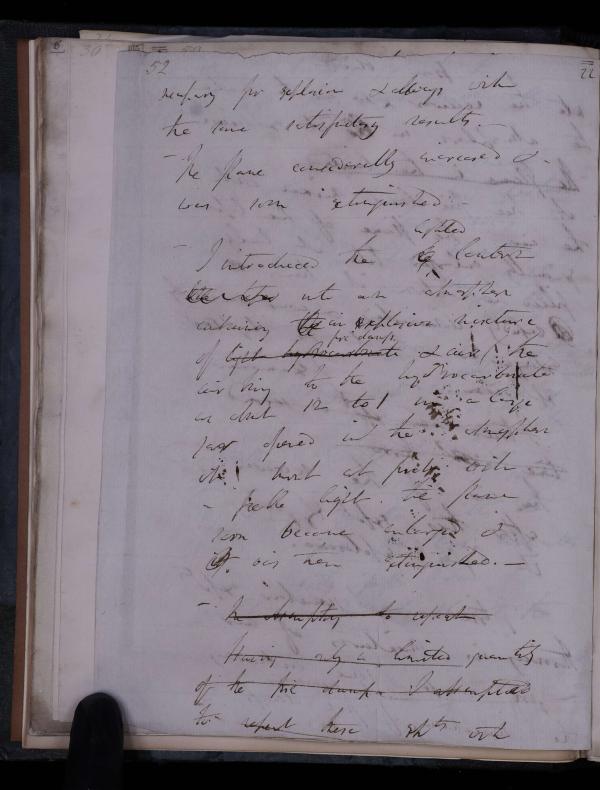 52
22
necessary for explosion & always with
the same satisfactory results. —
— The flame considerably increased &
was soon extinguished —
lighted
— I introduced the lantern
into an atmosphere
containing an explosive mixture
fire damp
of light hydrocarbonate & air / the
air being to the hydrocarbonate
as about 12 to 1 in a large
jar opened in the atmosphere
it burnt at first with
a feeble light. the flame
soon became enlarged &
was then extinguished. —
— In attempting to repeat
Having only a limited quantity
of the fire damp I attempted
to repeat these with